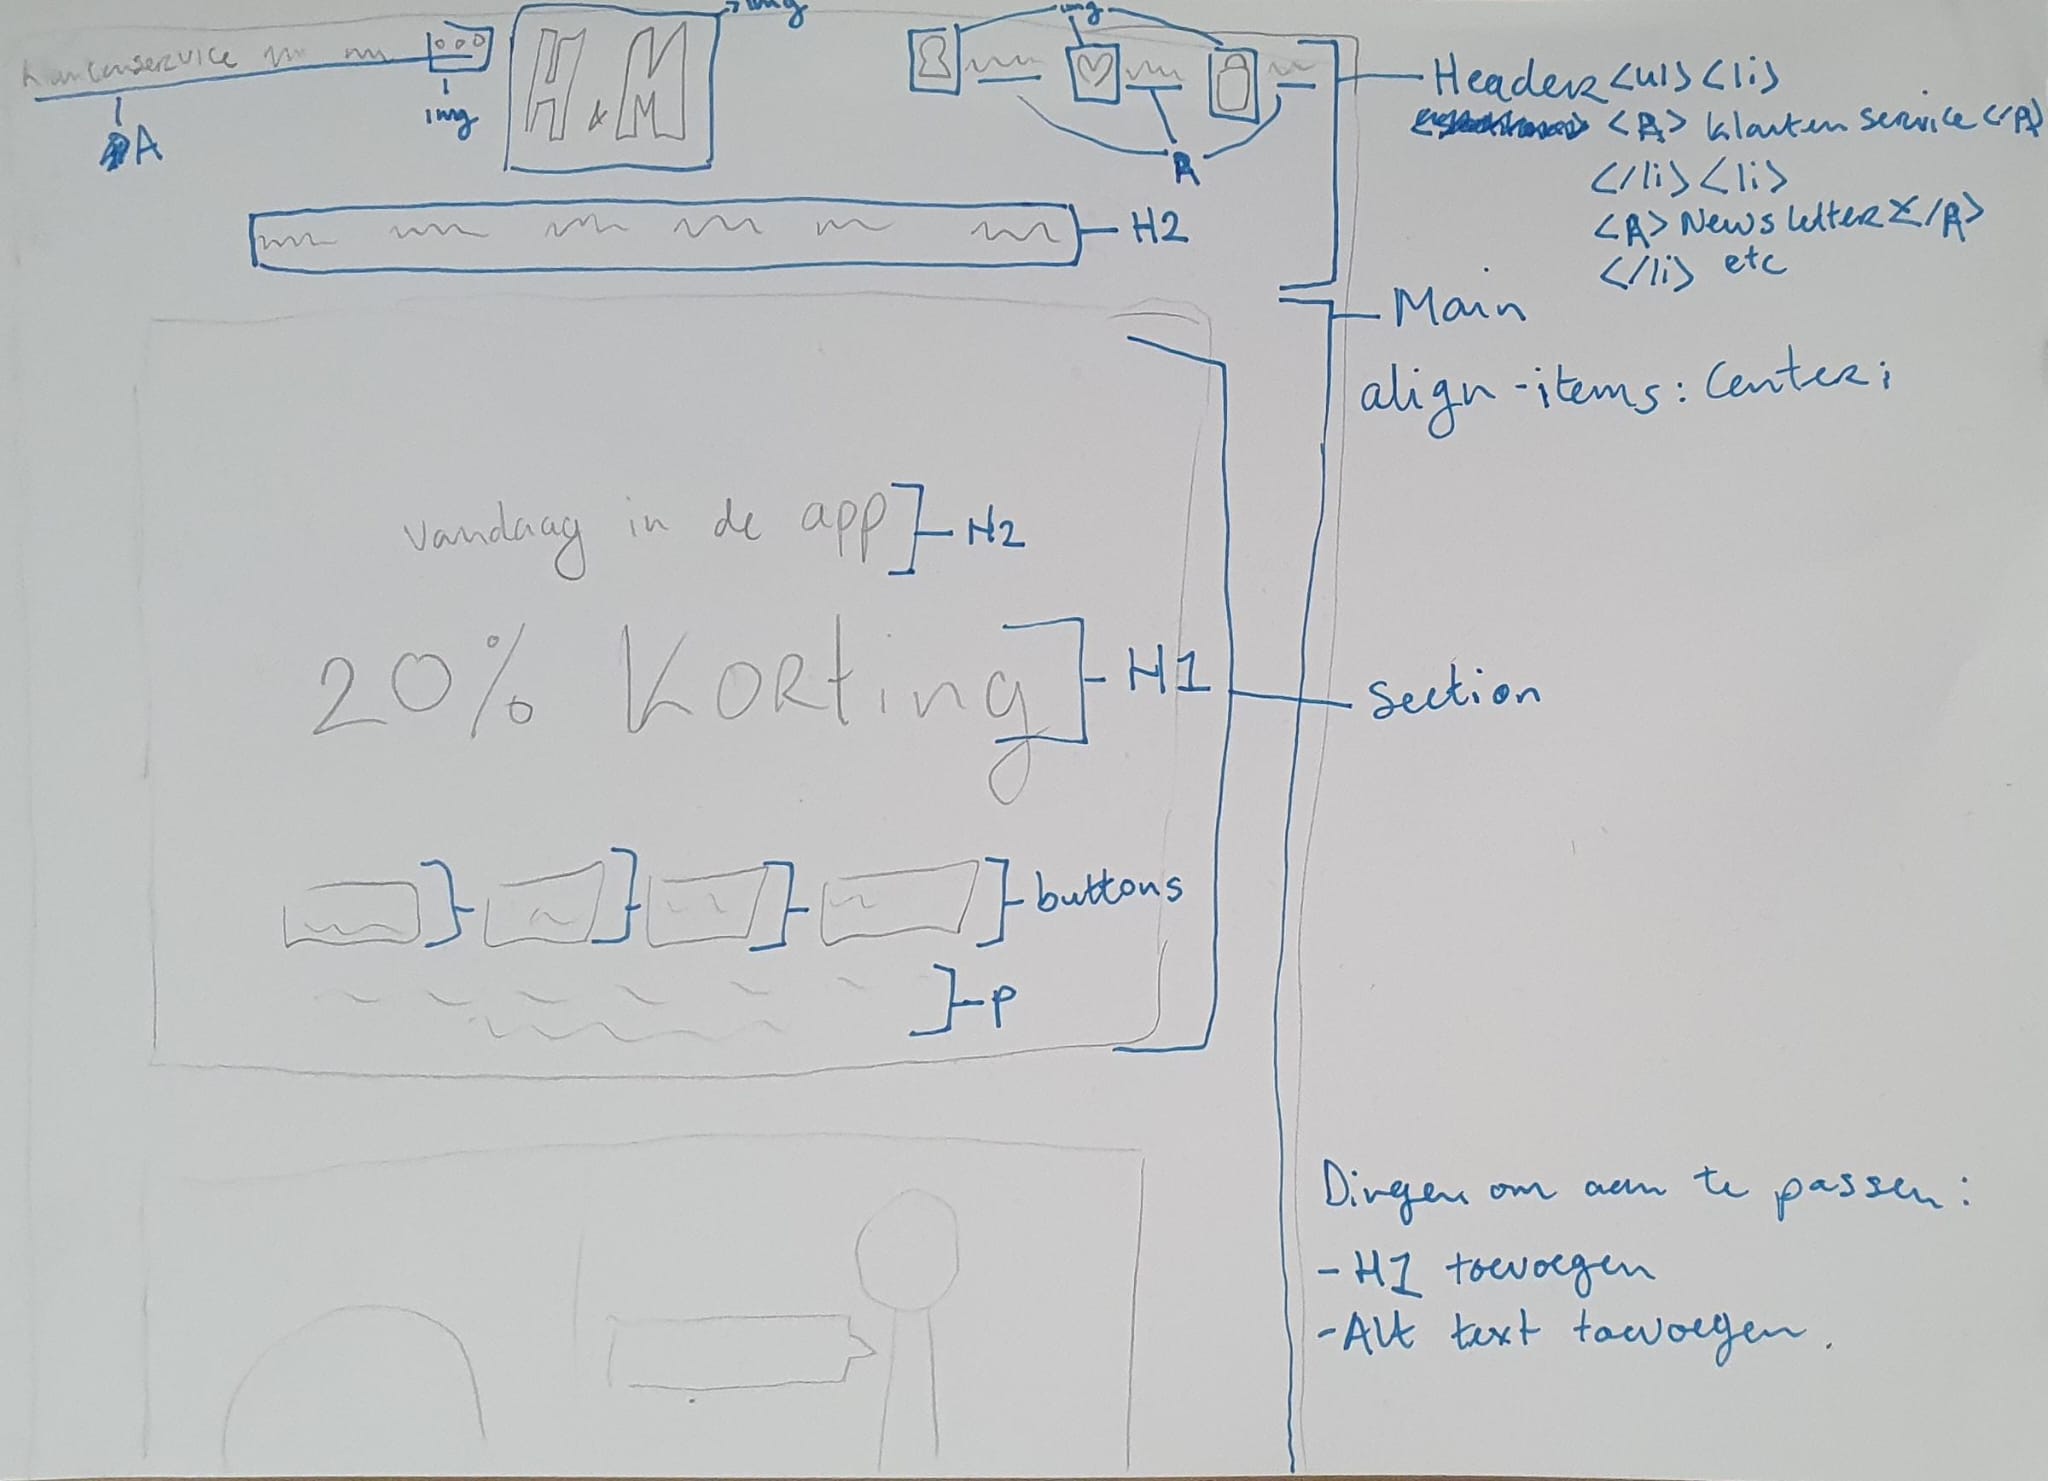 klantenservice
A
img
H & M
img
img
A
H2
Header <ul> <li>
<A> klanten service </A>
</li> <li>
<A> Newsletter </A>
</li> etc
Main
align-items: center;
vandaag in de app
H2
20% Korting
H1
Section
buttons
p
Dingen om aan te passen:
- H1 toevoegen
- Alt text toevoegen.